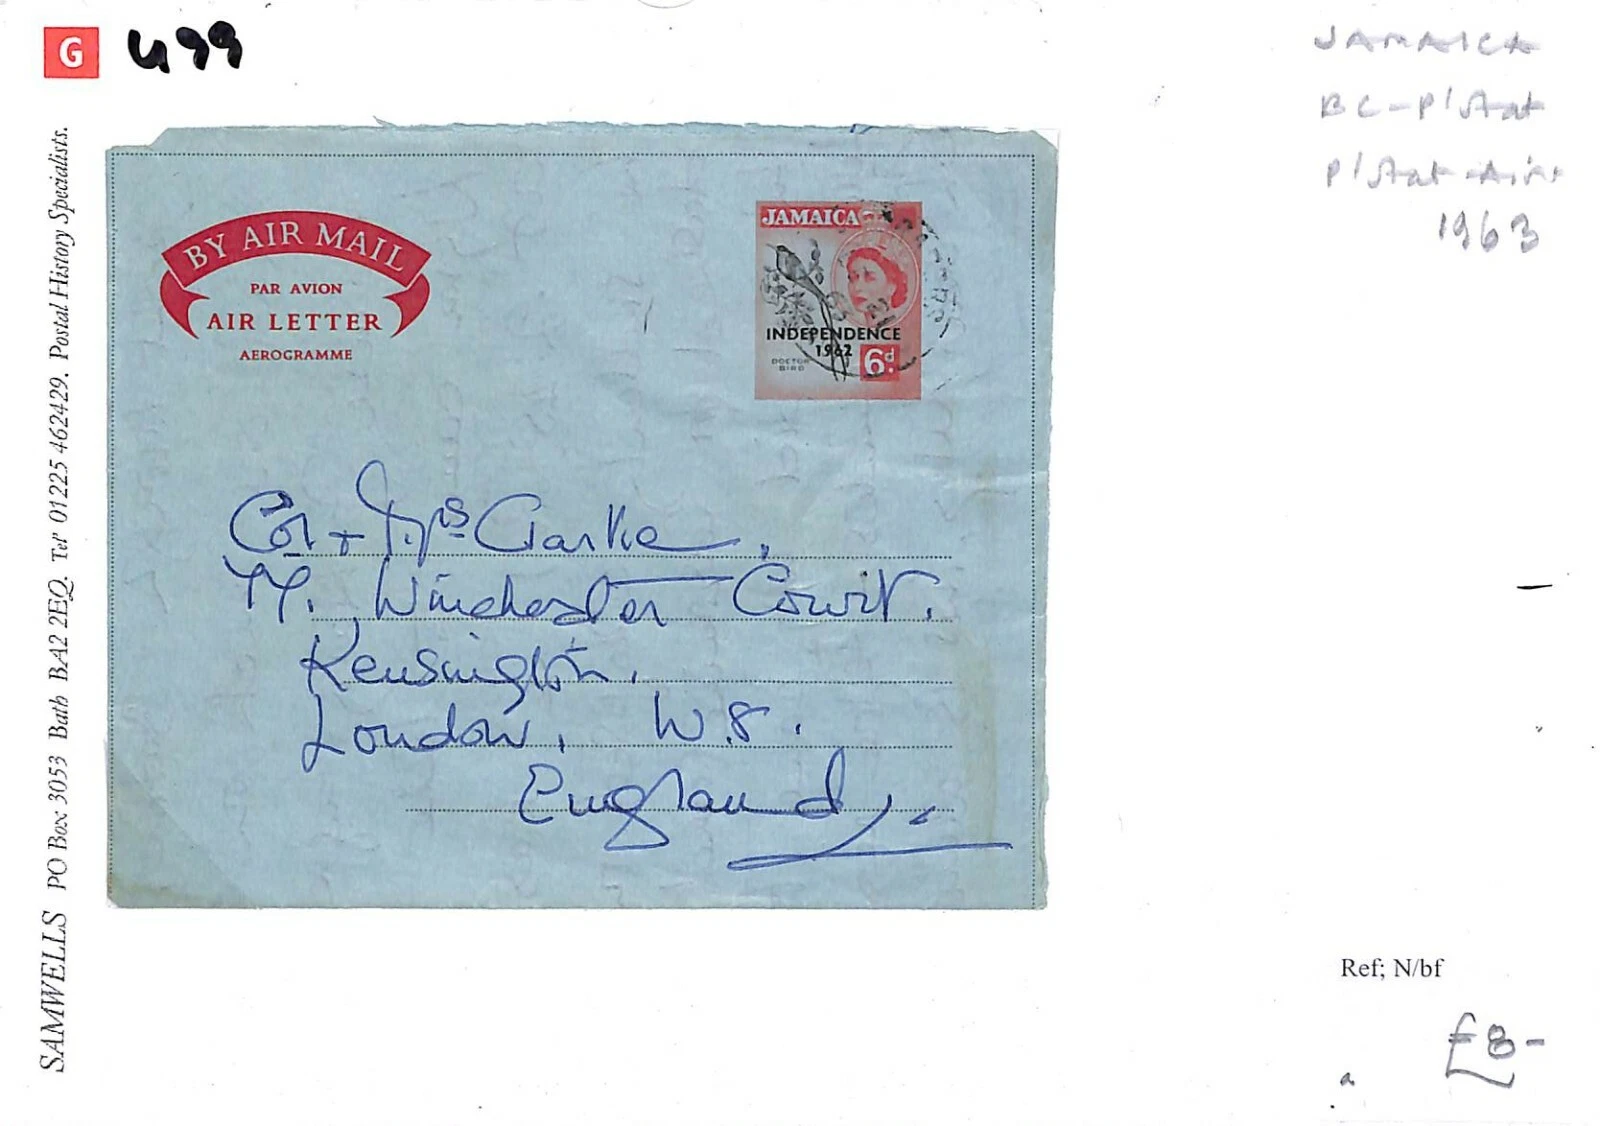 G U99
JAMAICA
BC-P'Stat
P'Stat-Airs
1963
SAMWELLS PO Box 3053 Bath BA2 2EQ. Tel' 01225 462429. Postal History Specialists.
BY AIR MAIL
PAR AVION
AIR LETTER
AEROGRAMME
JAMAICA
INDEPENDENCE
1962
DOCTOR
BIRD
6d.
Col + Mrs Clarke,
Winchester Court.
Kensington.
London, W.8.
England,
Ref; N/bf
£8-
a